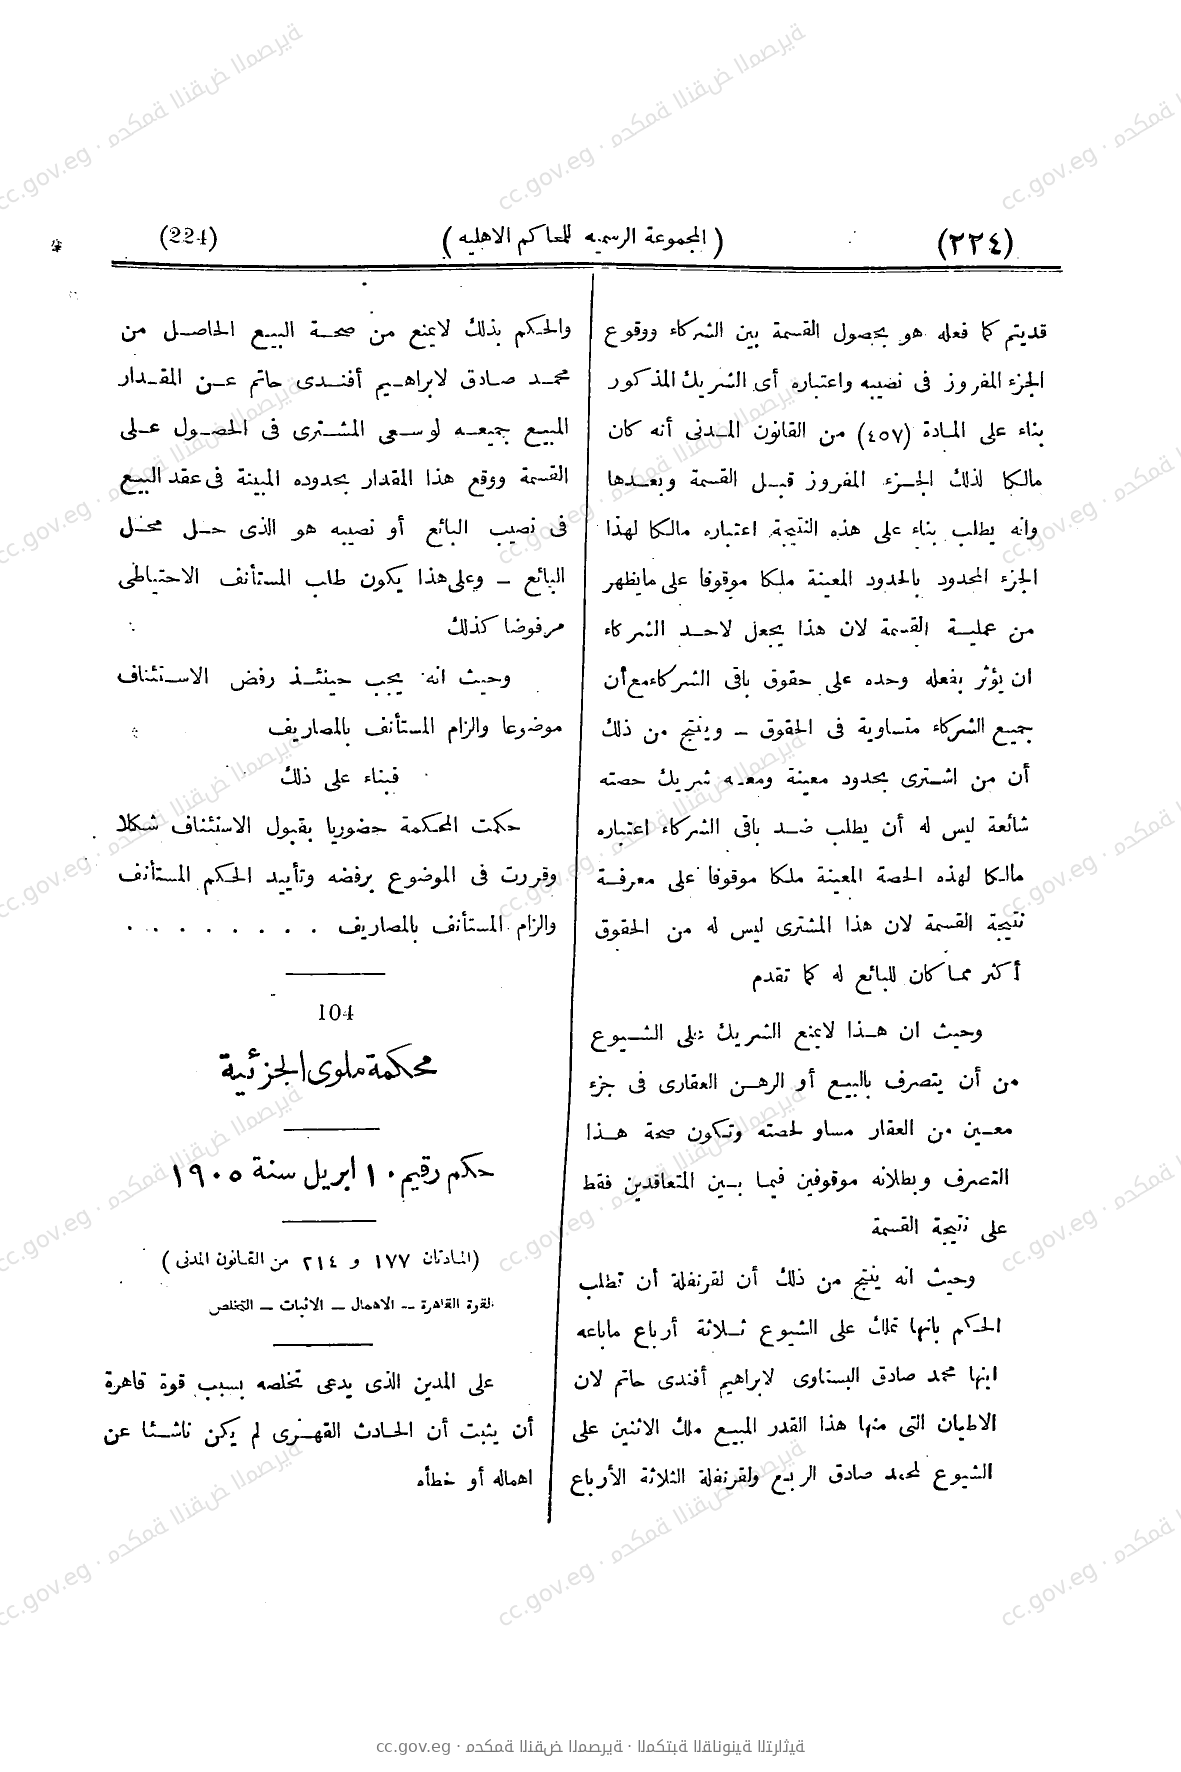 (٢٢٤)
( المجموعة الرسميه للمحاكم الاهليه )
(224)
قديتم كما فعله هو بحصول القسمة بين الشركاء ووقوع
الجزء المفروز فى نصيبه واعتباره أى الشريك المذكور
بناء على المادة (٤٥٧) من القانون المدنى أنه كان
مالكا لذلك الجزء المفروز قبل القسمة وبعدها
وانه يطلب بناء على هذه النتيجة اعتباره مالكا لهذا
الجزء المحدود بالحدود المعينة ملكا موقوفا على مايظهر
من عملية القسمة لان هذا يجعل لاحد الشركاء
ان يؤثر بفعله وحده على حقوق باقى الشركاء مع أن
جميع الشركاء متساوية فى الحقوق – وينتج من ذلك
أن من اشترى بحدود معينة ومعه شريك حصته
شائعة ليس له أن يطلب ضد باقى الشركاء اعتباره
مالكا لهذه الحصة المعينة ملكا موقوفا على معرفة
نتيجة القسمة لان هذا المشترى ليس له من الحقوق
أكثر مما كان للبائع له كما تقدم
وحيث ان هذا لايمنع الشريك على الشيوع
من أن يتصرف بالبيع أو الرهن العقارى فى جزء
معين من العقار مساو لحصته وتكون صحة هذا
التصرف وبطلانه موقوفين فيما بين المتعاقدين فقط
على نتيجة القسمة
وحيث انه ينتج من ذلك أن لقرنفلة أن تطلب
الحكم بانها تملك على الشيوع ثلاثة أرباع ماباعه
ابنها محمد صادق البستاوى لابراهيم أفندى حاتم لان
الاطيان التى منها هذا القدر المبيع ملك الاثنين على
الشيوع لمحمد صادق الربع ولقرنفلة الثلاثة الأرباع
والحكم بذلك لايمنع من صحة البيع الحاصل من
محمد صادق لابراهيم أفندى حاتم عن المقدار
المبيع جميعه لو سعى المشترى فى الحصول على
القسمة ووقع هذا المقدار بحدوده المبينة فى عقد البيع
فى نصيب البائع أو نصيبه هو الذى حل محل
البائع – وعلى هذا يكون طلب المستأنف الاحتياطى
مرفوضا كذلك
وحيث انه يجب حينئذ رفض الاستئناف
موضوعا والزام المستأنف بالمصاريف
فبناء على ذلك
حكمت المحكمة حضوريا بقبول الاستئناف شكلا
وقررت فى الموضوع برفضه وتأييد الحكم المستأنف
والزام المستأنف بالمصاريف . . . . . . . .
104
محكمة ملوى الجزئية
حكم رقيم ١٠ ابريل سنة ١٩٠٥
(المادتان ١٧٧ و ٢١٤ من القانون المدنى )
القوة القاهرة -- الاهمال – الاثبات – التخلص
على المدين الذى يدعى تخلصه بسبب قوة قاهرة
أن يثبت أن الحادث القهرى لم يكن ناشئا عن
اهماله أو خطأه
cc.gov.eg · محكمة النقض المصرية · المكتبة القانونية التراثية